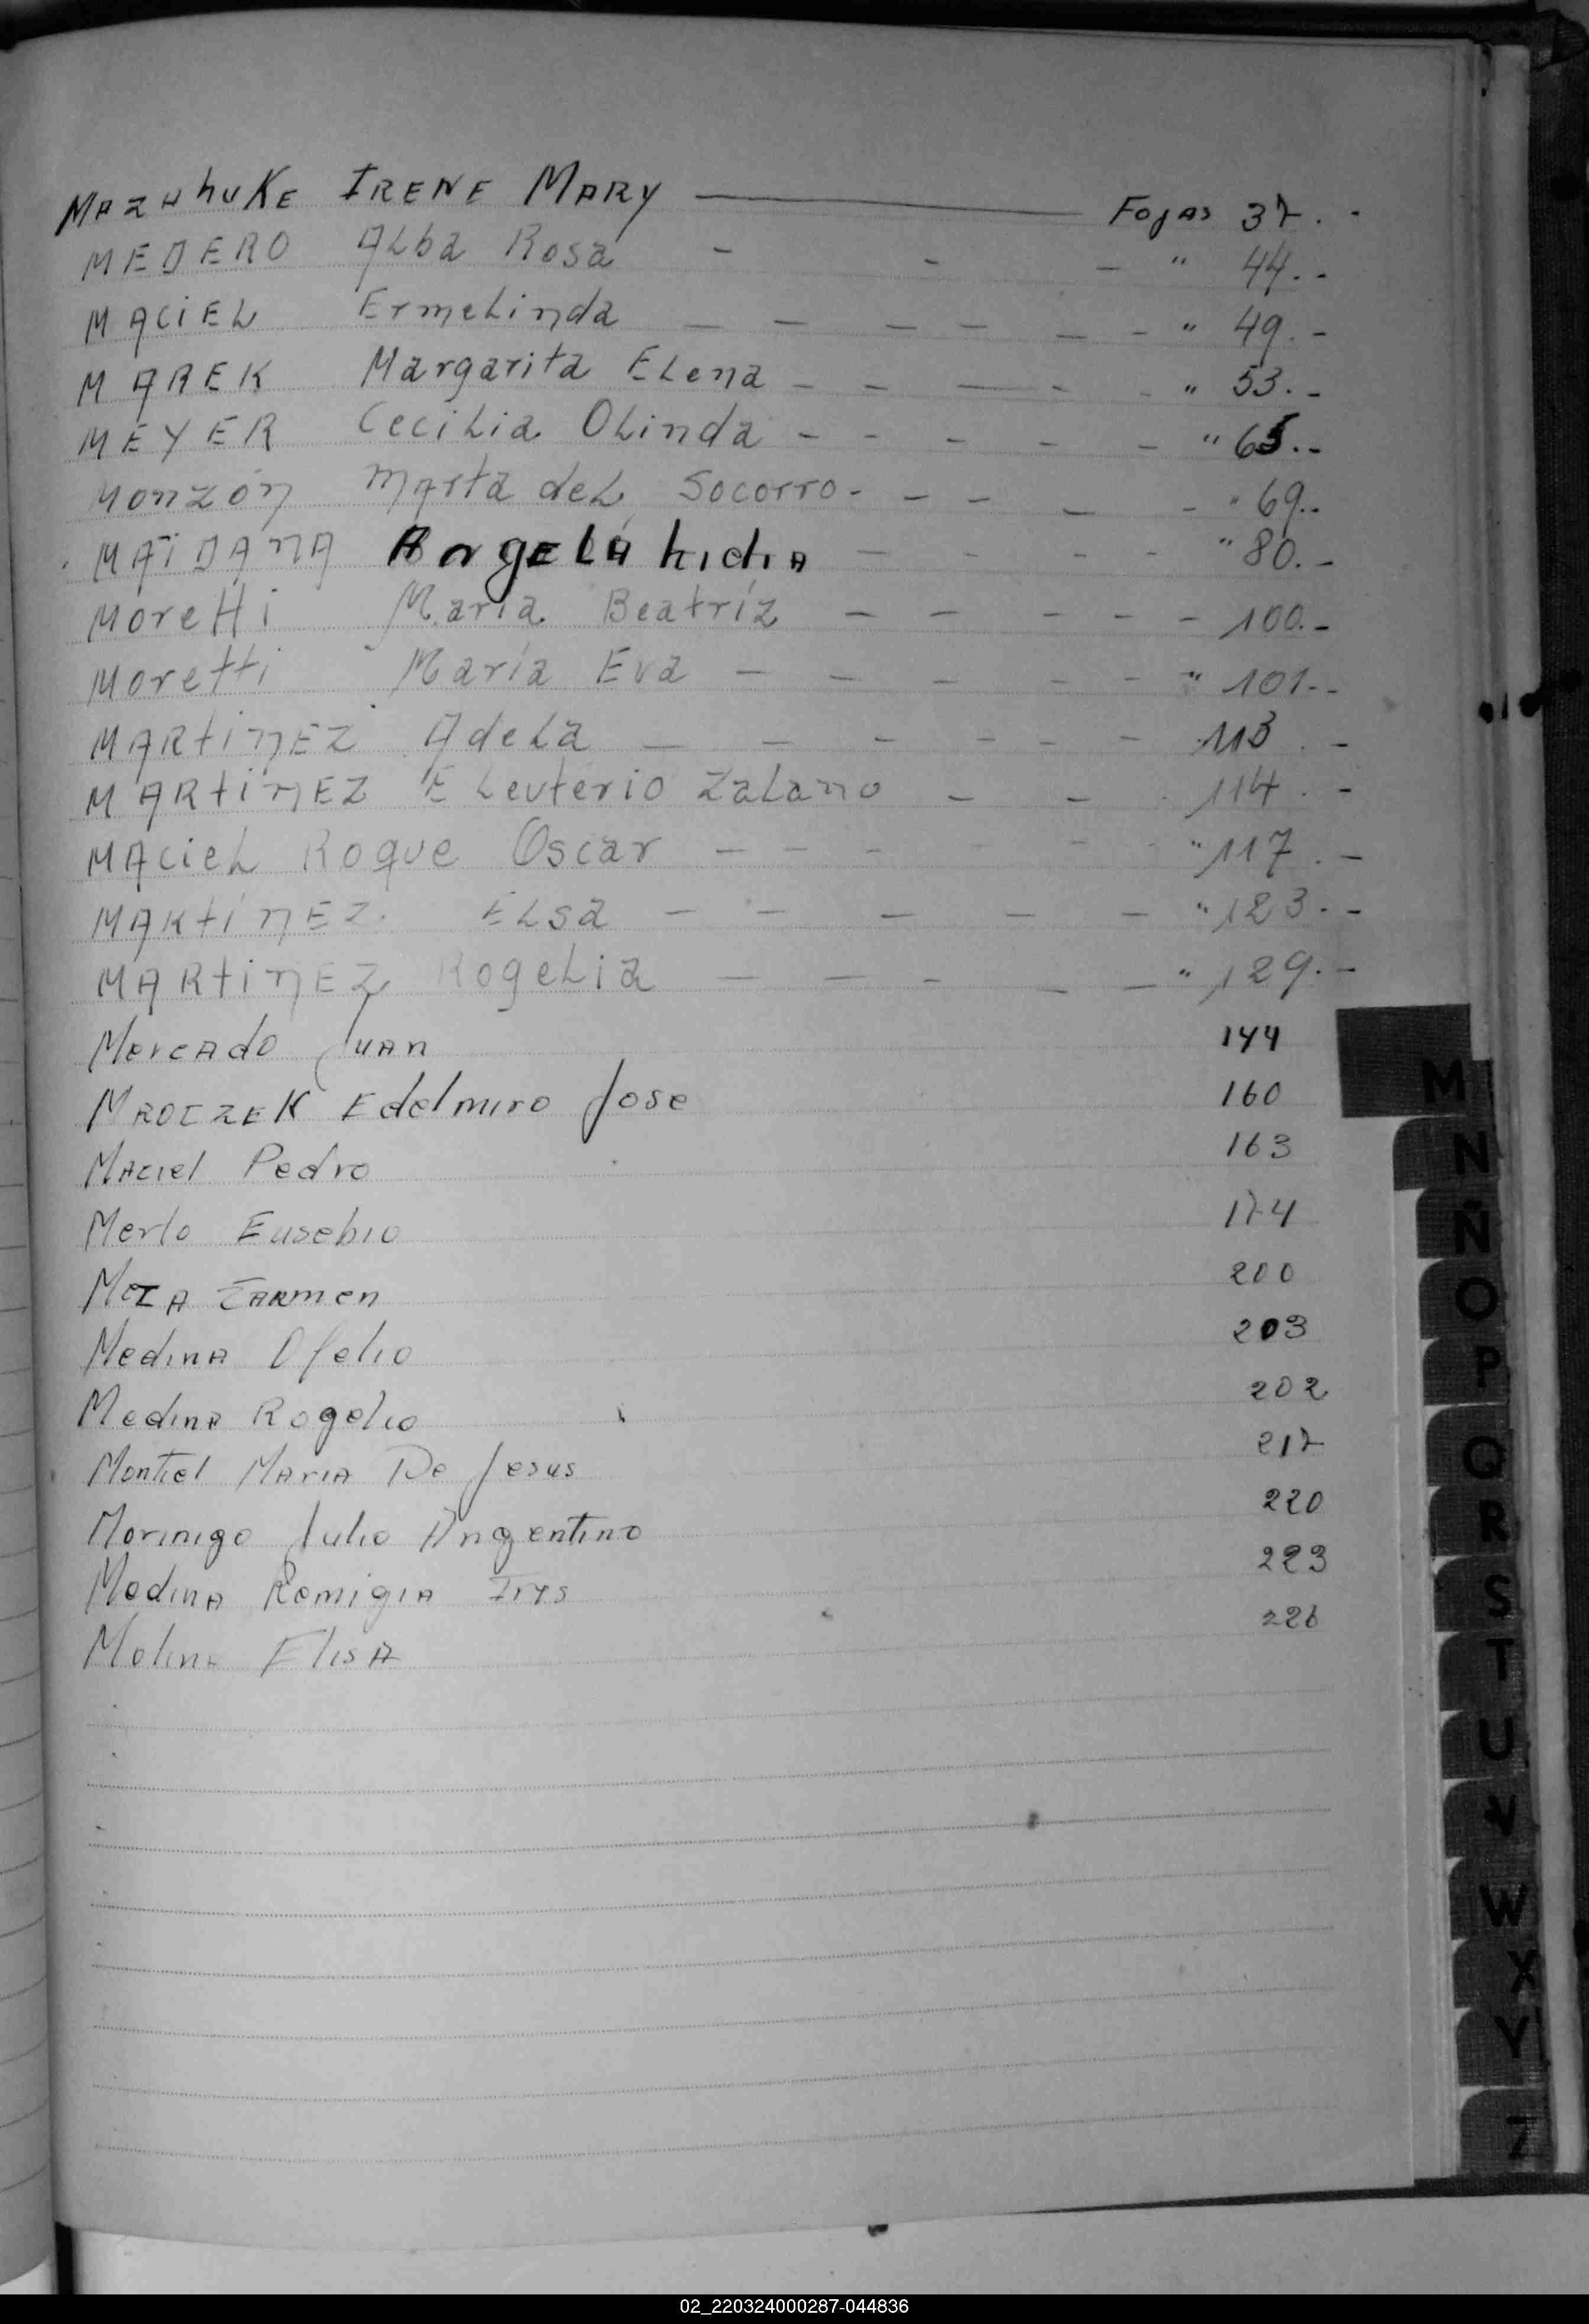 MAZUHUKE IRENE MARY Fojas 37.-
MEDERO ALba Rosa - - - " 44.-
MACiEL ErmeLinda - - - - - - " 49.-
MAREK Margarita ELena - - - - - " 53.-
MEYER CeciLia OLinda - - - - - " 65.-
Monzón MArta deL Socorro - - - - - " 69.-
MAiDAnA AngeLA Lidia - - - - " 80.-
Moretti María Beatríz - - - - - 100.-
Moretti María Eva - - - - - " 101.-
MARtinEZ AdeLa - - - - - - 113.-
MARtinEZ ELeuterio ZaLano - - 114.-
MAcieL Roque Oscar - - - - - " 117.-
MARtínEZ ELsa - - - - - " 123.-
MARtinEZ RogeLia - - - - - " 129.-
Mercado Juan 144
MROCZEK Edelmiro Jose 160
Maciel Pedro 163
Merlo Eusebio 174
MeZA CARmen 200
Medina Ofelio 203
Medina Rogelio 202
Montiel Maria De Jesus 217
Morinigo Julio Argentino 220
Medina Remigia Irys 223
Molina Elisa 226
M
N
Ñ
O
P
Q
R
S
T
U
V
W
X
Y
Z
02_220324000287-044836